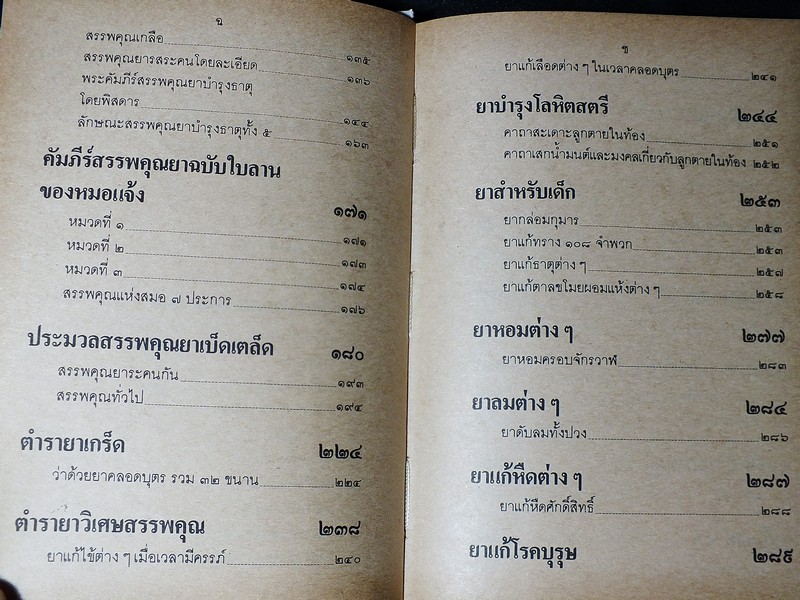 ฉ
สรรพคุณเกลือ ๑๓๕
สรรพคุณยารสระคนโดยละเอียด ๑๓๖
พระคัมภีร์สรรพคุณยาบำรุงธาตุ
โดยพิสดาร ๑๔๔
ลักษณะสรรพคุณยาบำรุงธาตุทั้ง ๕ ๑๖๓
คัมภีร์สรรพคุณยาฉบับใบลาน
ของหมอแจ้ง ๑๗๑
หมวดที่ ๑ ๑๗๑
หมวดที่ ๒ ๑๗๓
หมวดที่ ๓ ๑๗๔
สรรพคุณแห่งสมอ ๗ ประการ ๑๗๖
ประมวลสรรพคุณยาเบ็ดเตล็ด ๑๘๐
สรรพคุณยาระคนกัน ๑๙๓
สรรพคุณทั่วไป ๑๙๕
ตำรายาเกร็ด ๒๒๔
ว่าด้วยยาคลอดบุตร รวม ๓๒ ขนาน ๒๒๔
ตำรายาวิเศษสรรพคุณ ๒๓๘
ยาแก้ไข้ต่าง ๆ เมื่อเวลามีครรภ์ ๒๔๐
ช
ยาแก้เลือดต่าง ๆ ในเวลาคลอดบุตร ๒๔๑
ยาบำรุงโลหิตสตรี ๒๔๔
คาถาสะเดาะลูกตายในท้อง ๒๕๑
คาถาเสกน้ำมนต์และมงคลเกี่ยวกับลูกตายในท้อง ๒๕๒
ยาสำหรับเด็ก ๒๕๓
ยากล่อมกุมาร ๒๕๓
ยาแก้ทราง ๑๐๘ จำพวก ๒๕๓
ยาแก้ธาตุต่าง ๆ ๒๕๗
ยาแก้ตาลขโมยผอมแห้งต่าง ๆ ๒๕๘
ยาหอมต่าง ๆ ๒๗๗
ยาหอมครอบจักรวาฬ ๒๘๓
ยาลมต่าง ๆ ๒๘๔
ยาดับลมทั้งปวง ๒๘๖
ยาแก้หืดต่าง ๆ ๒๘๗
ยาแก้หืดศักดิ์สิทธิ์ ๒๘๘
ยาแก้โรคบุรุษ ๒๘๙